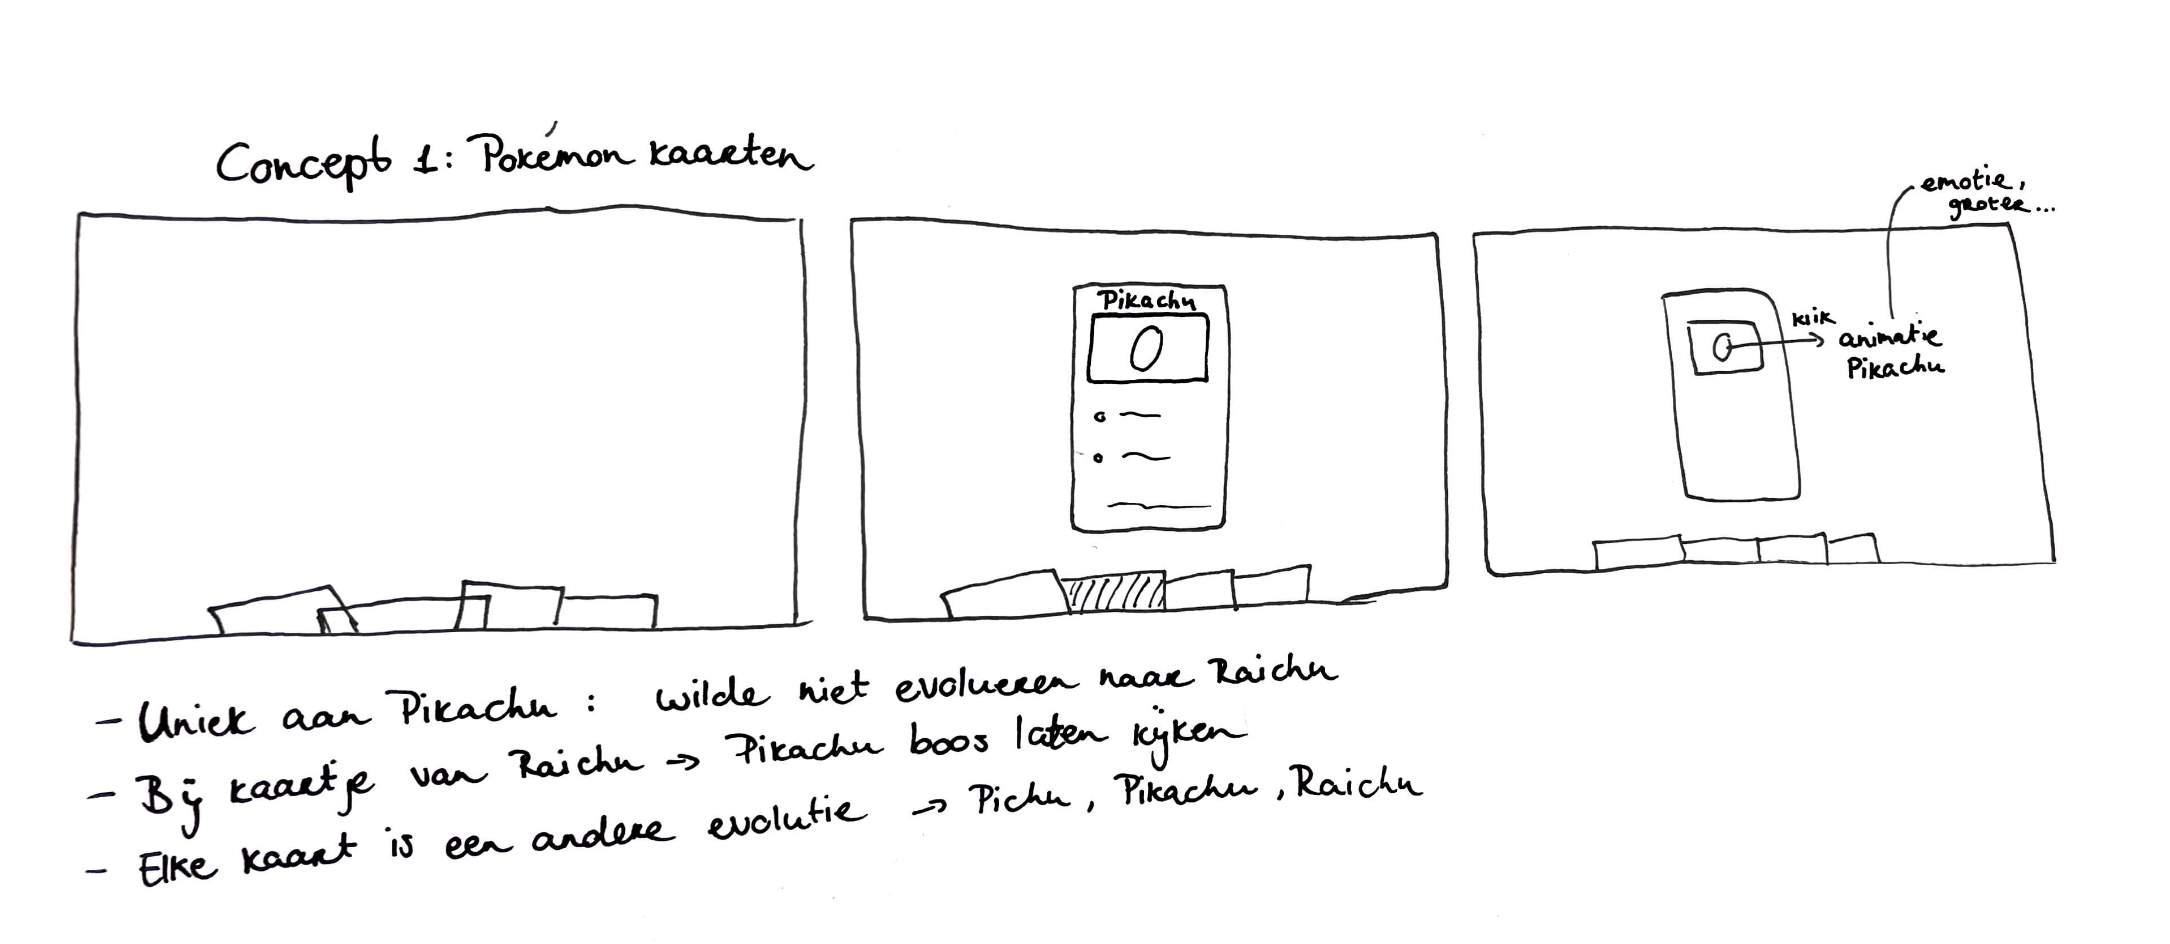 Concept 1: Pokémon kaarten
emotie,
groter...
Pikachu
klik
animatie
Pikachu
- Uniek aan Pikachu : wilde niet evolueren naar Raichu
- Bij kaartje van Raichu → Pikachu boos laten kijken
- Elke kaart is een andere evolutie → Pichu, Pikachu, Raichu